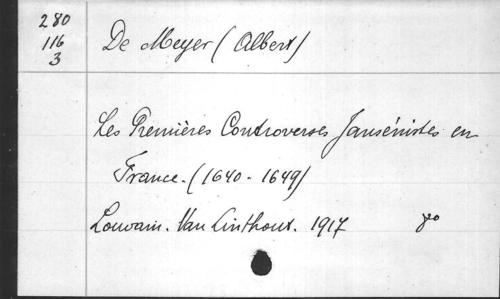 280
116
3
De Meyer (Albert)
Les Premières Controverses Jansénistes en
France. (1640-1649)
Louvain. Van Linthout. 1917 8vo